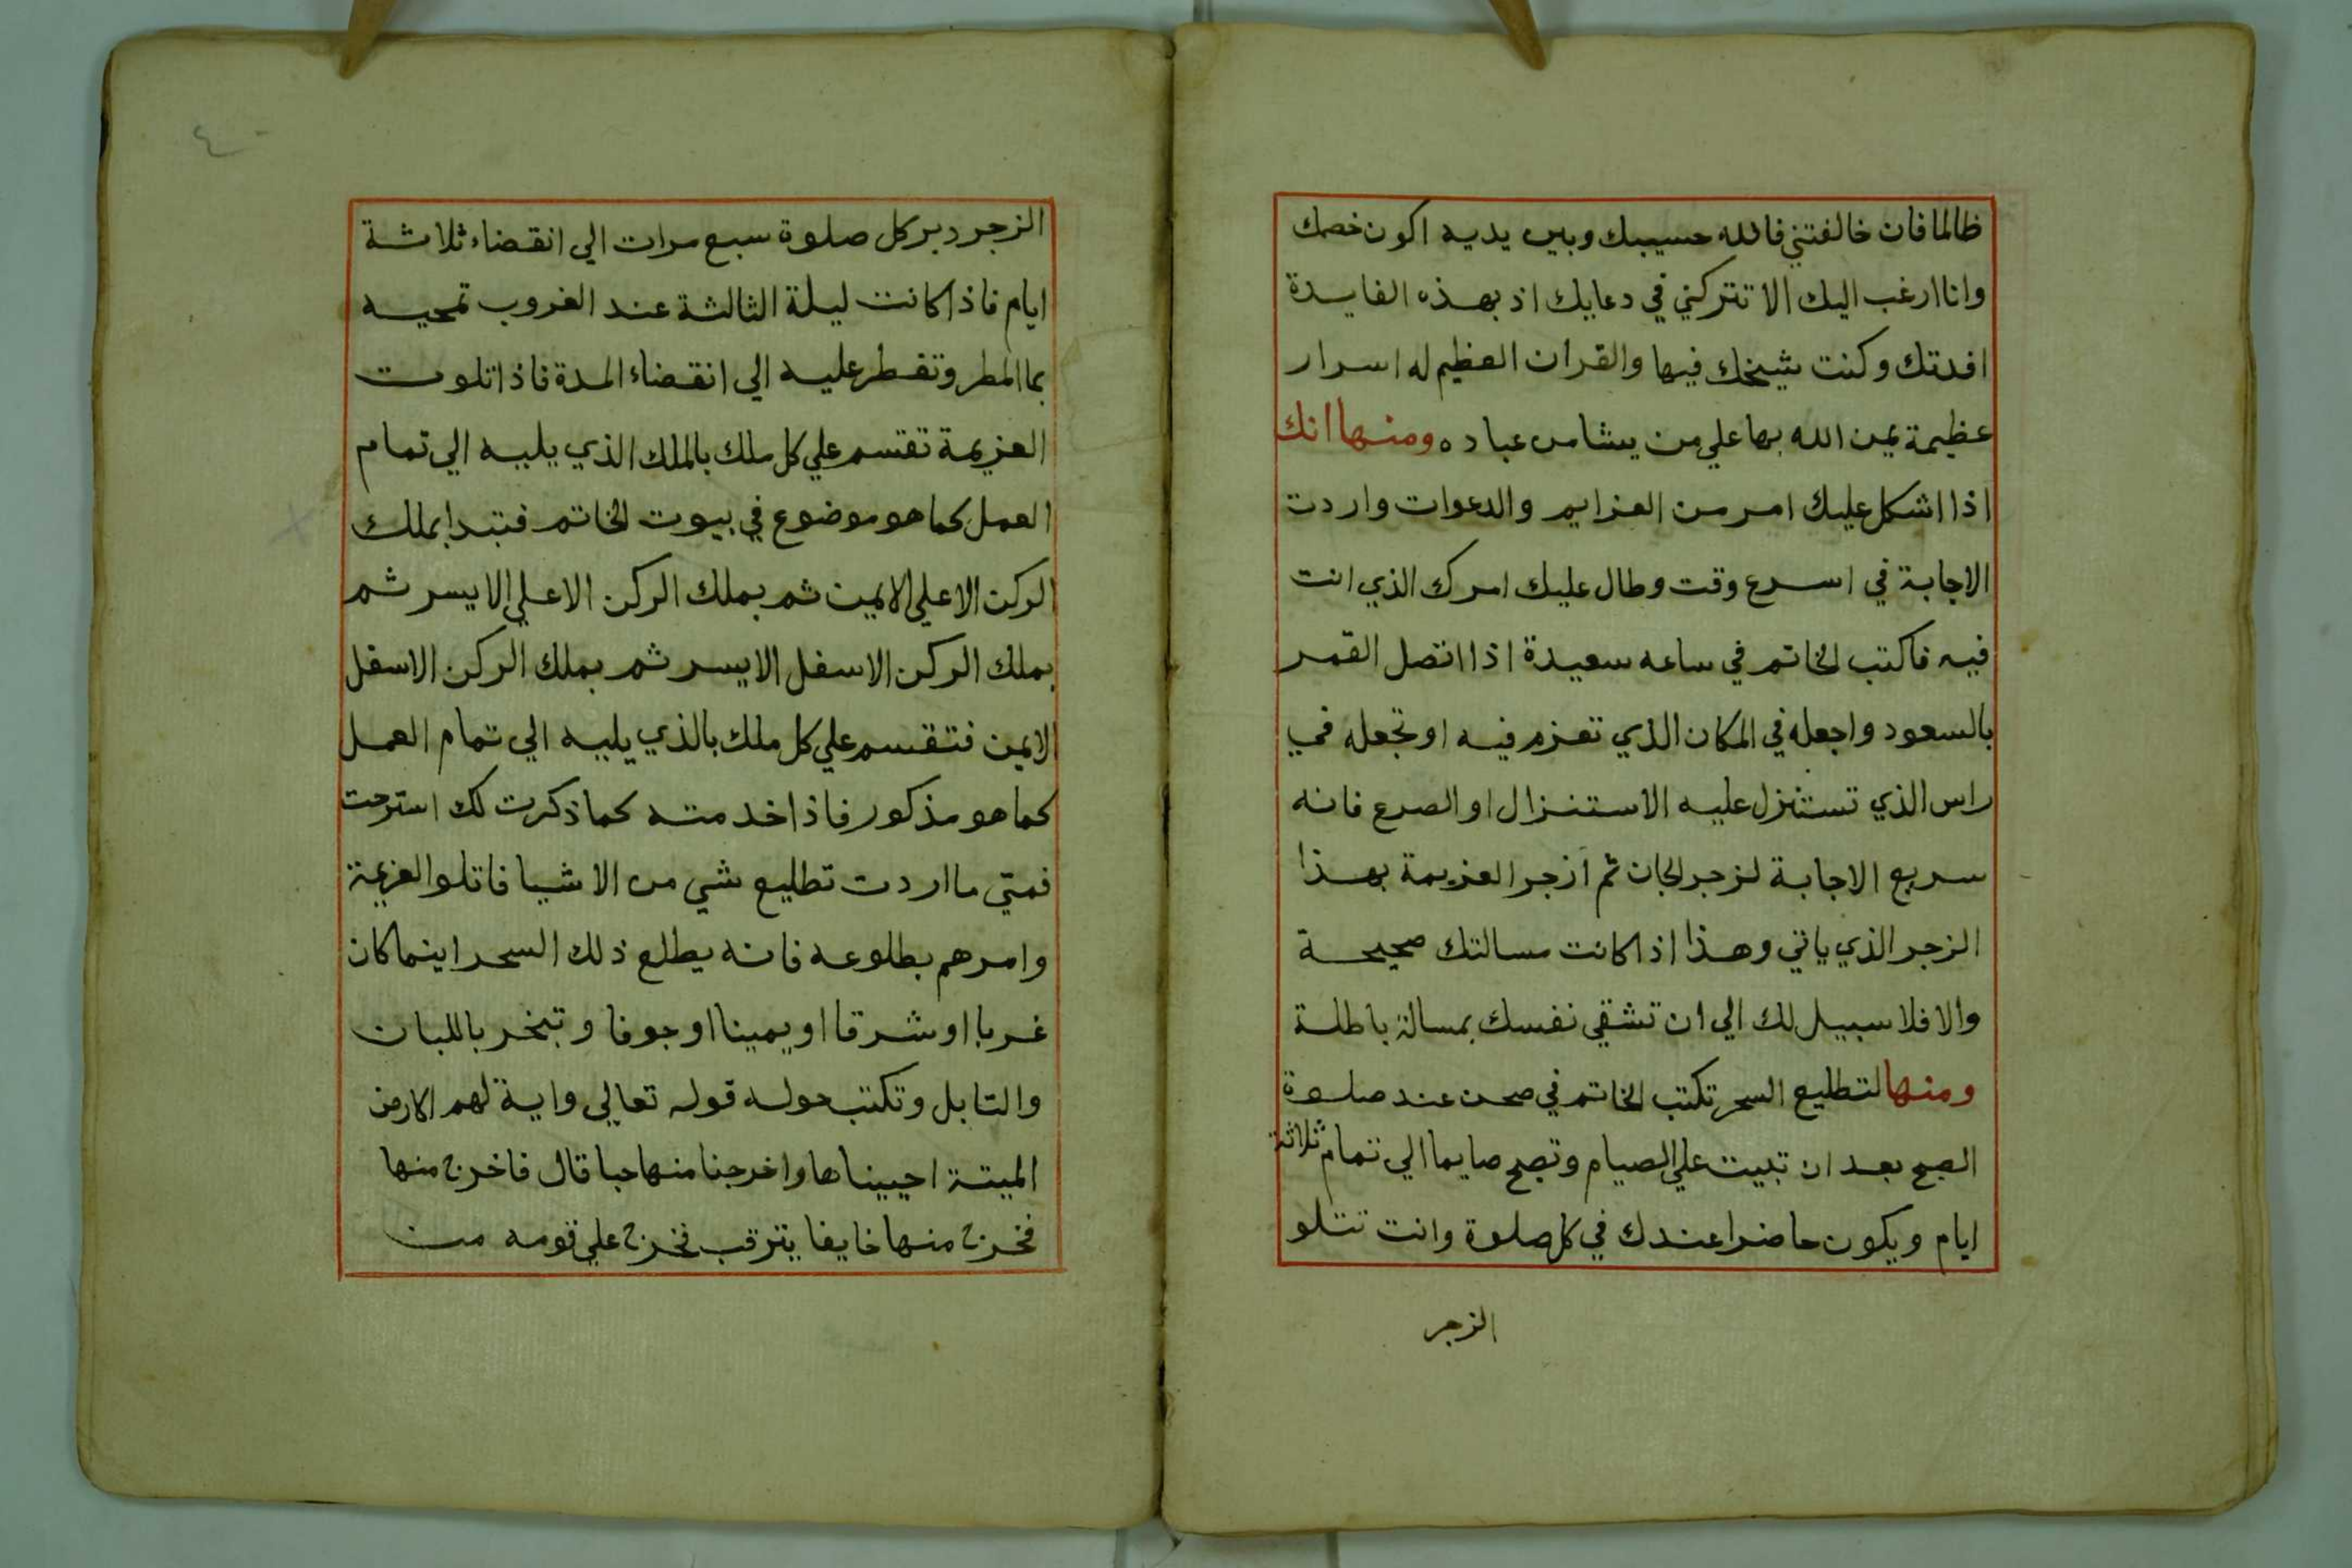 ظالما فان خالفتني فالله حسيبك وبين يديه اكون خصمك
وانا ارغب اليك الا تتركني في دعايك اذ بهذه الفايدة
افدتك وكنت شيخك فيها والقران العظيم له اسرار
عظيمة يمن الله بها علي من يشا من عباده ومنها انك
اذا اشكل عليك امر من العزايم والدعوات واردت
الاجابة في اسرع وقت وطال عليك امرك الذي انت
فيه فاكتب الخاتم في ساعه سعيدة اذا اتصل القمر
بالسعود واجعله في المكان الذي تعزم فيه او تجعله في
راس الذي تستنزل عليه الاستنزال او الصرع فانه
سريع الاجابة لزجر الجان ثم ازجر العزيمة بهذا
الزجر الذي ياتي وهذا اذا كانت مسالتك صحيحة
والا فلا سبيل لك الي ان تشقي نفسك بمسالة باطلة
ومنها لتطليع السحر تكتب الخاتم في صحن عند صلوة
الصبح بعد ان تبيت علي الصيام وتصبح صايما الي تمام ثلاثة
ايام ويكون حاضرا عندك في كل صلوة وانت تتلو
الزجر
٤٠
الزجر دبر كل صلوة سبع مرات الي انقضاء ثلاثة
ايام فاذا كانت ليلة الثالثة عند الغروب تمحيه
بما المطر وتفطر عليه الي انقضاء المدة فاذا تلوت
العزيمة تقتسم علي كل ملك بالملك الذي يليه الي تمام
العمل كما هو موضوع في بيوت الخاتم فتبدا بملك
الركن الاعلي الايمن ثم بملك الركن الاعلي الايسر ثم
بملك الركن الاسفل الايسر ثم بملك الركن الاسفل
الايمن فتقسم علي كل ملك بالذي يليه الي تمام العمل
كما هو مذكور فاذا خدمته كما ذكرت لك استرحت
فمتي ما اردت تطليع شي من الاشيا فاتلو العزيمة
وامرهم بطلوعه فانه يطلع ذلك السحر اينما كان
غربا او شرقا او يمينا او جوفا وتبخر باللبان
والتابل وتكتب حوله قوله تعالي واية لهم الارض
الميتة احييناها واخرجنا منها حبا قال فاخرج منها
فخرج منها خايفا يترقب فخرج علي قومه من